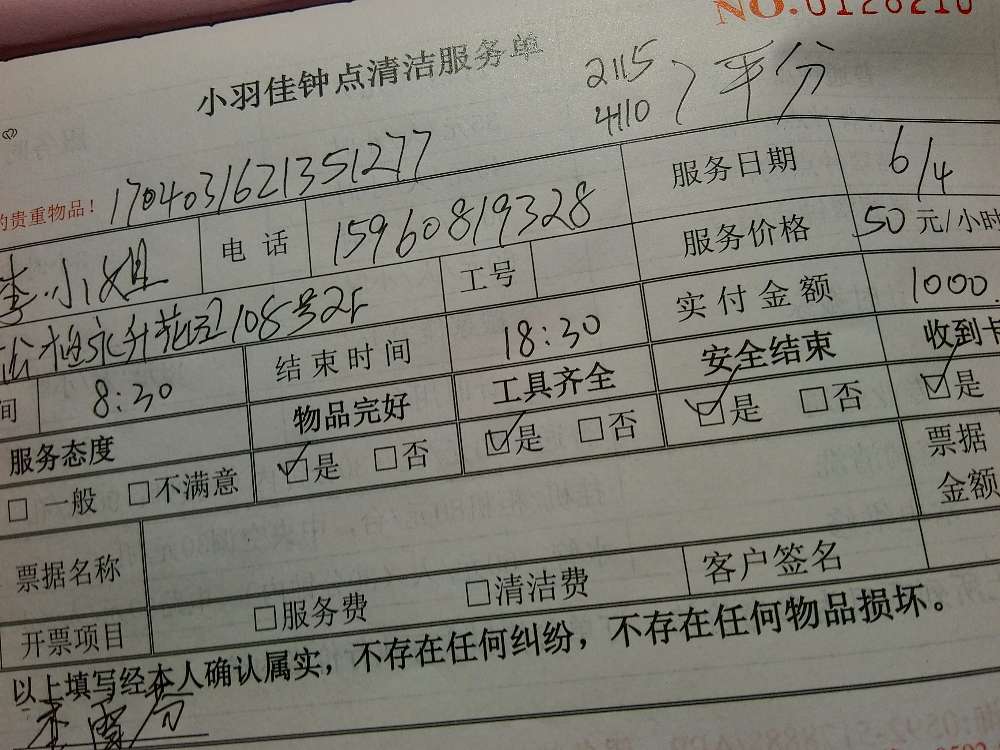 NO.0128210
小羽佳钟点清洁服务单
2115
4110 平分
的贵重物品! 1704031621351277
李小姐 电话 15960819328 服务日期 6/4
工号 服务价格 50元/小时
永升花园108号2F 实付金额 1000
间 8:30 结束时间 18:30 安全结束 收到卡
服务态度 物品完好 工具齐全
□一般 □不满意 ☑是 □否 ☑是 □否 ☑是 □否 ☑是
票据名称 票据金额
开票项目 □服务费 □清洁费 客户签名
以上填写经本人确认属实，不存在任何纠纷，不存在任何物品损坏。